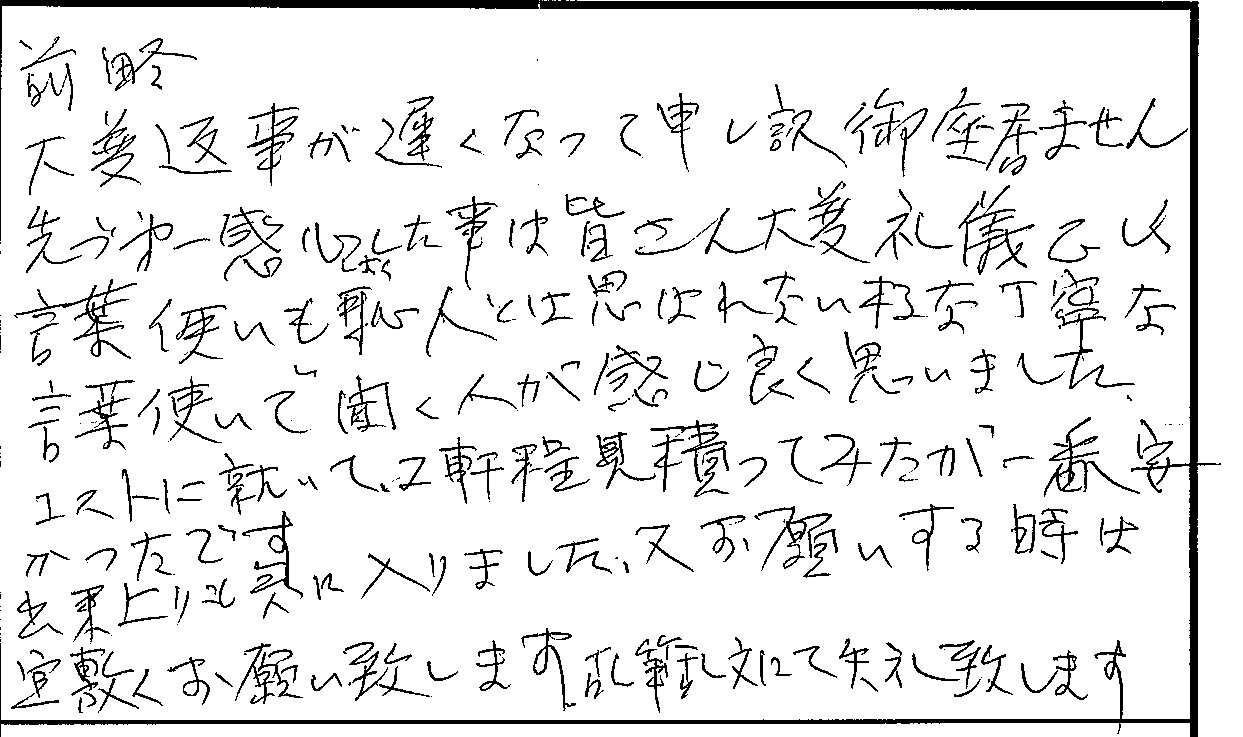 前略
大変返事が遅くなって申し訳御座居ません
先づ第一感心した事は皆さん大変礼儀正しく
言葉使いも職人とは思はれない様な丁寧な
言葉使いで聞く人が感じ良く思いました、
コストに就いては2軒程見積ってみたが一番安
かったです
出来上りも気に入りました、又お願いする時は
宜敷くお願い致します、乱筆乱文にて失礼致します